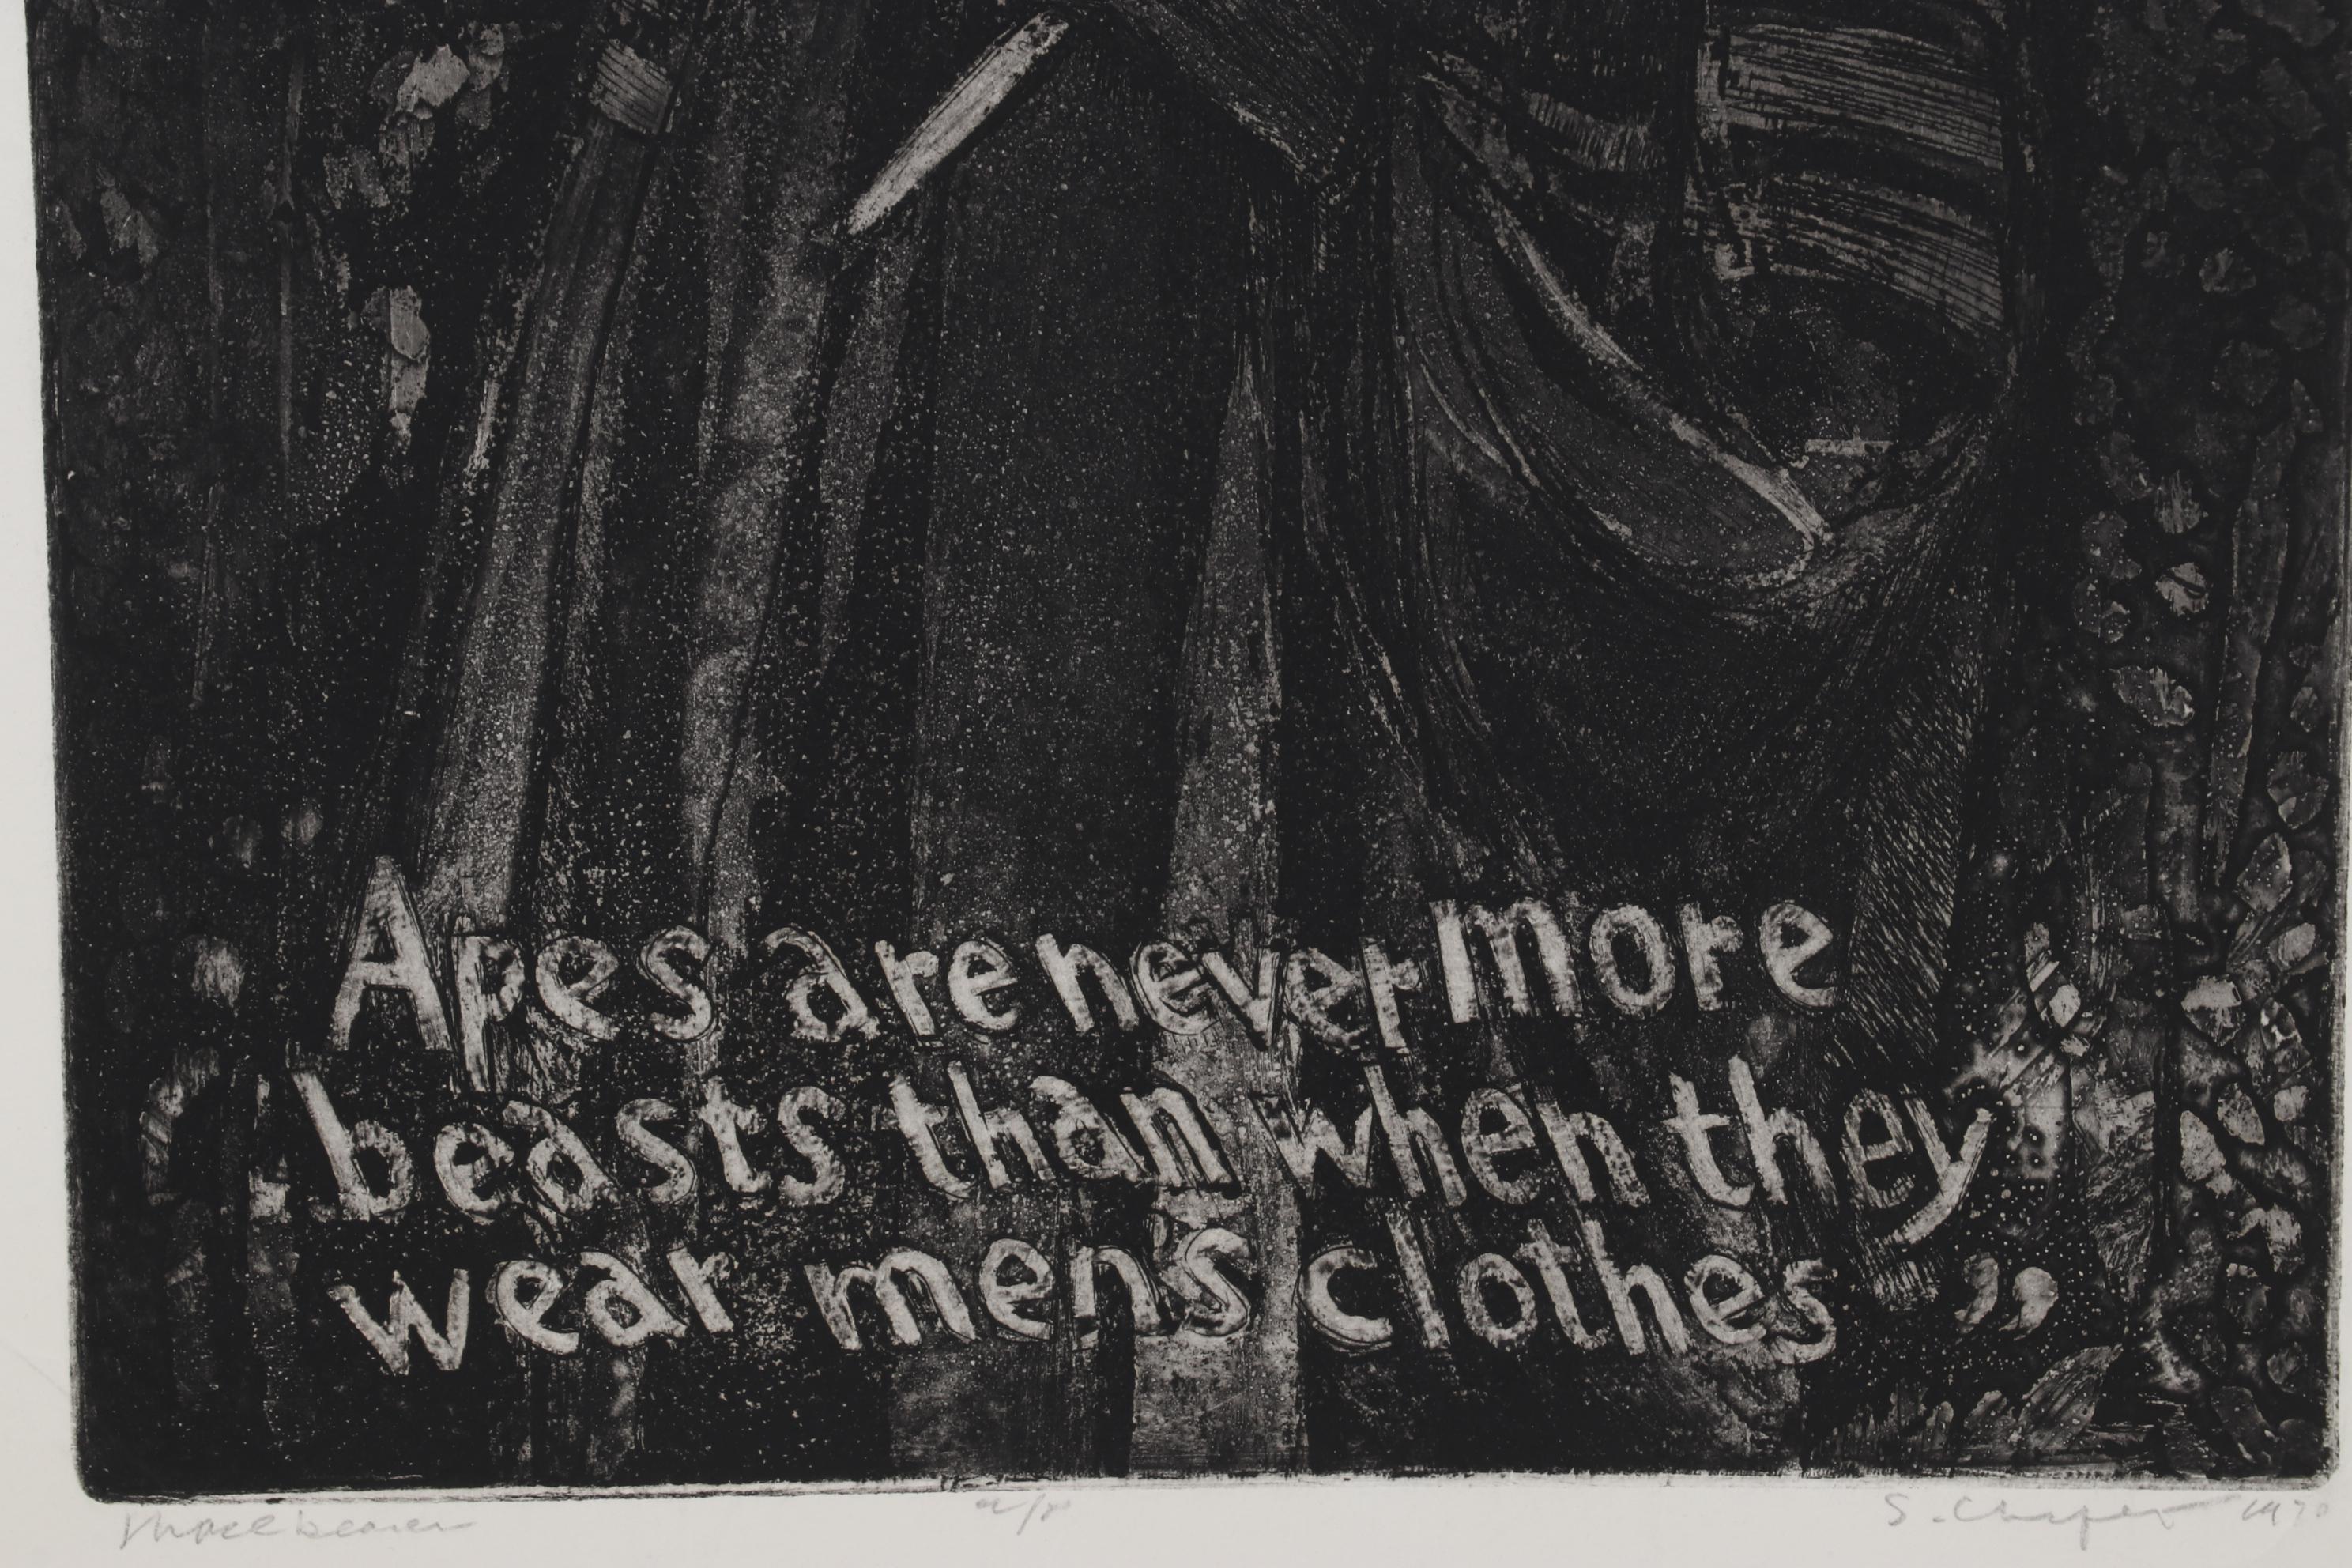 Apes are never more
beasts than when they
wear men's clothes ”
a/p
S. 1970